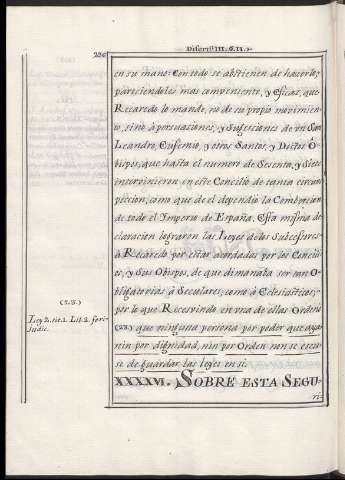 236
Disert. III. C. II.
en su mano: Con todo se abstienen de hacerlo;
pareciendoles mas conveniente, y eficas, que
Recaredo lo mande, no de su propio movimien-
to, sino à persuaciones, y Sugesciones de un San
Leandro, Eufemio, y otros Santos, y Doctos O-
bispos, que hasta el numero de Sesenta, y Siete
intervinieron en este Concilio de tanta circun
peccion, como que de el dependiò la Conversion
de todo el Imperio de España. Esta misma de
claracion lograron las Leyes de los Subcesores
à Recaredo por estar acordadas por los Concili
os, y Sus Obispos, de que dimanaba ser tan O-
bligatorias à Seculares, como à Eclesiasticos;
por lo que Recesvindo en una de ellas Ordena
(23) que ninguna persona por poder que aya
nin por dignidad, nin por Orden non se escu-
se de guardar las leyes en si.
XXXXVI. SOBRE ESTA SEGU-
ri-
(23)
Ley 2. tit. 1. Lib. 2. fori
Judic.